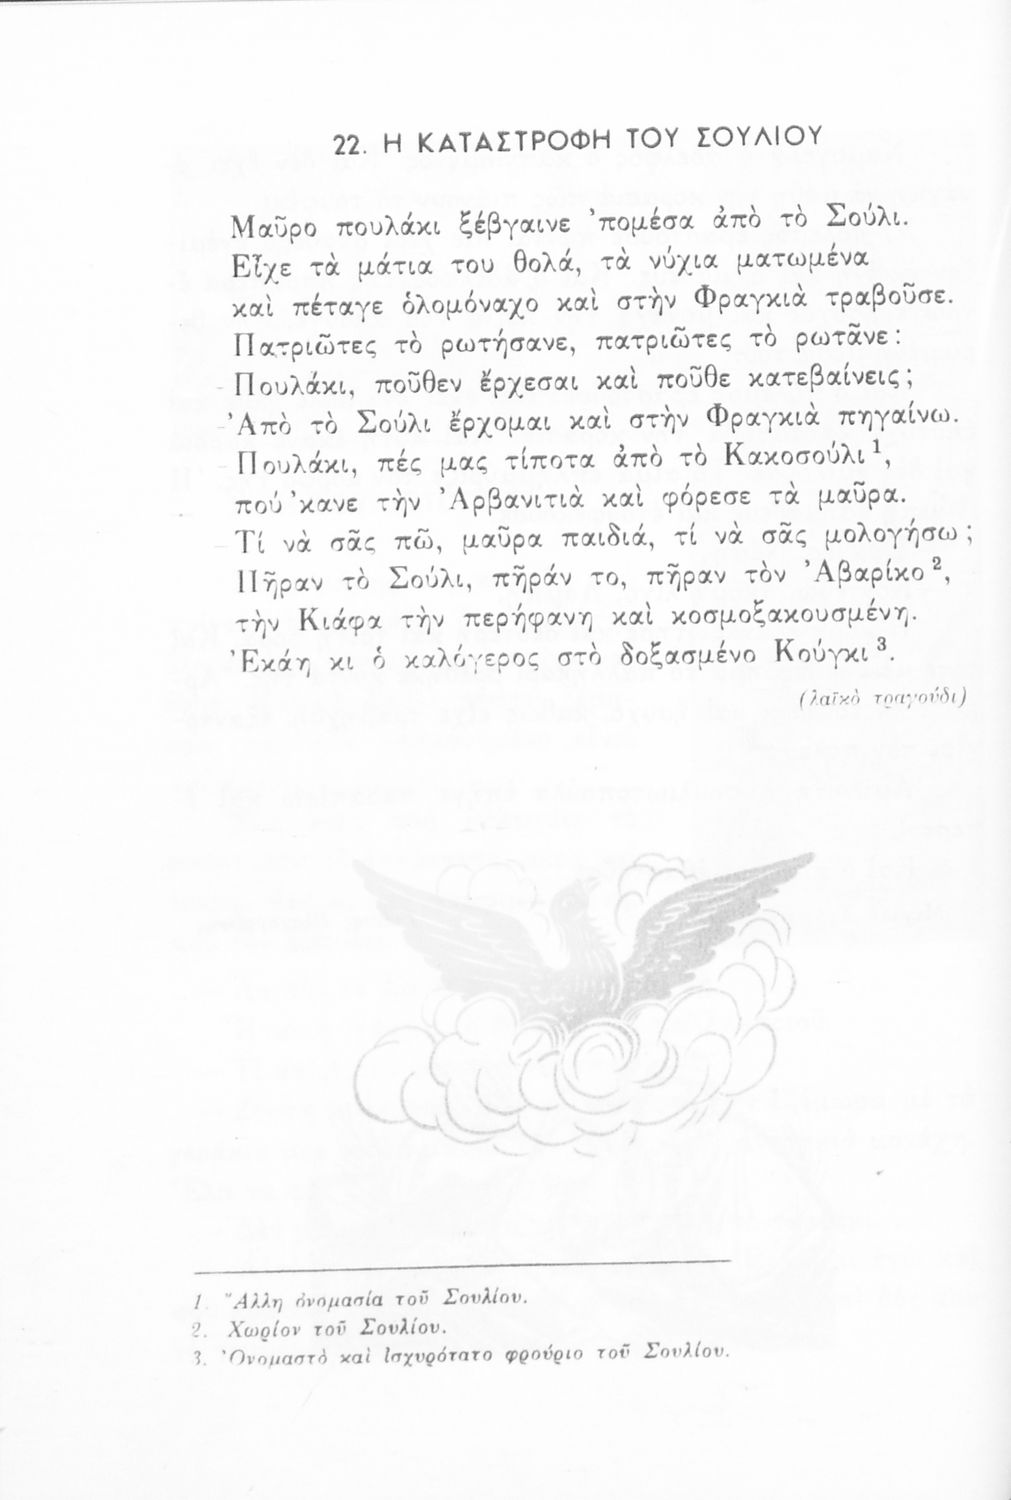 22. Η ΚΑΤΑΣΤΡΟΦΗ ΤΟΥ ΣΟΥΛΙΟΥ
Μαῦρο πουλάκι ξέβγαινε ’πομέσα ἀπὸ τὸ Σούλι.
Εἶχε τὰ μάτια του θολά, τὰ νύχια ματωμένα
καὶ πέταγε ὁλομόναχο καὶ στὴν Φραγκιὰ τραβοῦσε.
Πατριῶτες τὸ ρωτήσανε, πατριῶτες τὸ ρωτᾶνε:
- Πουλάκι, ποῦθεν ἔρχεσαι καὶ ποῦθε κατεβαίνεις;
- Ἀπὸ τὸ Σούλι ἔρχομαι καὶ στὴν Φραγκιὰ πηγαίνω.
- Πουλάκι, πές μας τίποτα ἀπὸ τὸ Κακοσούλι¹,
πού ’κανε τὴν Ἀρβανιτιὰ καὶ φόρεσε τὰ μαῦρα.
- Τί νὰ σᾶς πῶ, μαῦρα παιδιά, τί νὰ σᾶς μολογήσω;
Πῆραν τὸ Σούλι, πῆράν το, πῆραν τὸν Ἀβαρίκο²,
τὴν Κιάφα τὴν περήφανη καὶ κοσμοξακουσμένη.
Ἐκάη κι ὁ καλόγερος στὸ δοξασμένο Κούγκι³.
(λαϊκὸ τραγούδι)
1. Ἄλλη ὀνομασία τοῦ Σουλίου.
2. Χωρίον τοῦ Σουλίου.
3. Ὀνομαστὸ καὶ ἰσχυρότατο φρούριο τοῦ Σουλίου.